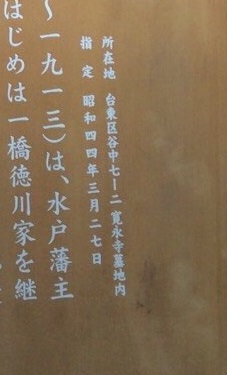 所在地 台東区谷中七ー二 寛永寺墓地内
指定 昭和四四年三月二七日
〜一九一三)は、水戸藩主
はじめは一橋徳川家を継